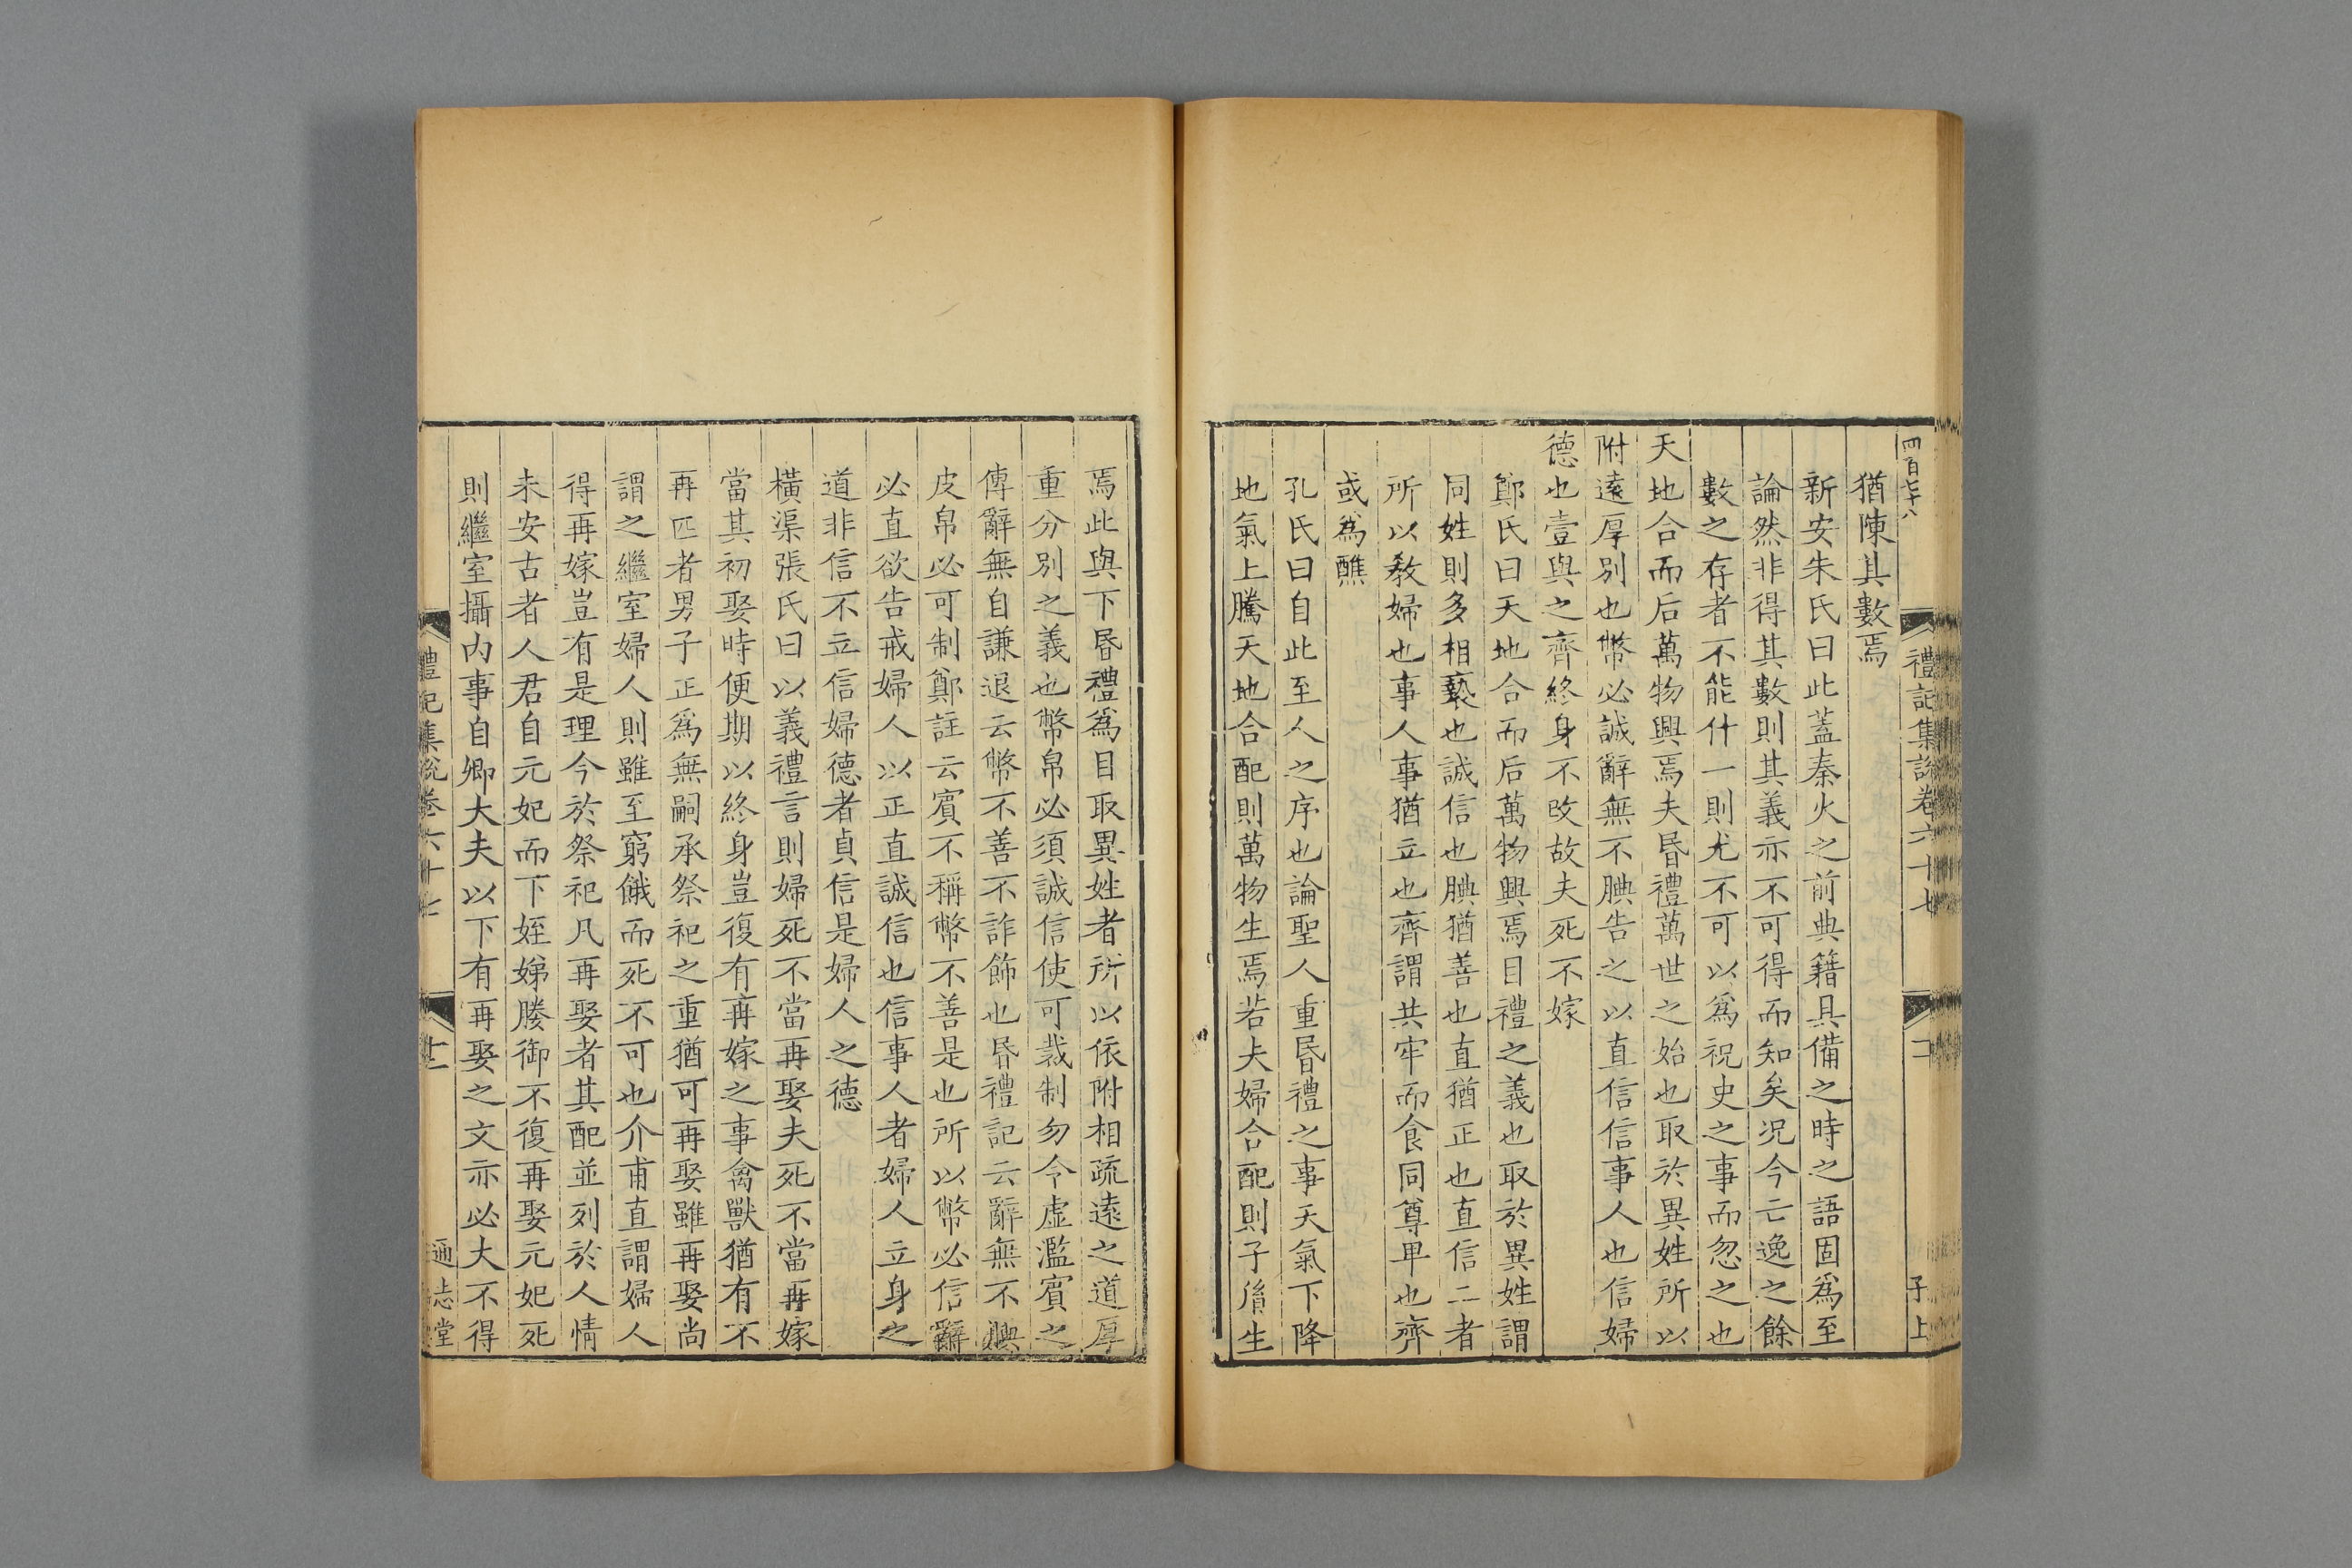 四百七十八
禮記集說卷六十七
子上
猶陳其數焉
新安朱氏曰此蓋秦火之前典籍具備之時之語固爲至
論然非得其數則其義亦不可得而知矣况今亡逸之餘
數之存者不能什一則尤不可以爲祝史之事而忽之也
天地合而后萬物興焉夫昬禮萬世之始也取於異姓所以
附遠厚别也幣必誠辭無不腆告之以直信信事人也信婦
德也壹與之齊終身不改故夫死不嫁
鄭氏曰天地合而后萬物興焉目禮之義也取於異姓謂
同姓則多相褻也誠信也腆猶善也直猶正也直信二者
所以教婦也事人事猶立也齊謂共牢而食同尊卑也齊
或爲醮
孔氏曰自此至人之序也論聖人重昬禮之事天氣下降
地氣上騰天地合配則萬物生焉若夫婦合配則子㣧生
焉此與下昬禮爲目取異姓者所以依附相疏遠之道厚
重分别之義也幣帛必須誠信使可裁制勿令虛濫賓之
傳辭無自謙退云幣不善不詐飾也昬禮記云辭無不腆
皮帛必可制鄭註云賓不稱幣不善是也所以幣必信辭
必直欲告戒婦人以正直誠信也信事人者婦人立身之
道非信不立信婦德者貞信是婦人之德
橫渠張氏曰以義禮言則婦死不當再娶夫死不當再嫁
當其初娶時便期以終身豈復有再嫁之事禽獸猶有不
再匹者男子正爲無嗣承祭祀之重猶可再娶雖再娶尚
謂之繼室婦人則雖至窮餓而死不可也介甫直謂婦人
得再嫁豈有是理今於祭祀凡再娶者其配並列於人情
未安古者人君自元妃而下姪娣媵御不復再娶元妃死
則繼室攝内事自卿大夫以下有再娶之文亦必大不得
禮記集說卷六十七
通志堂